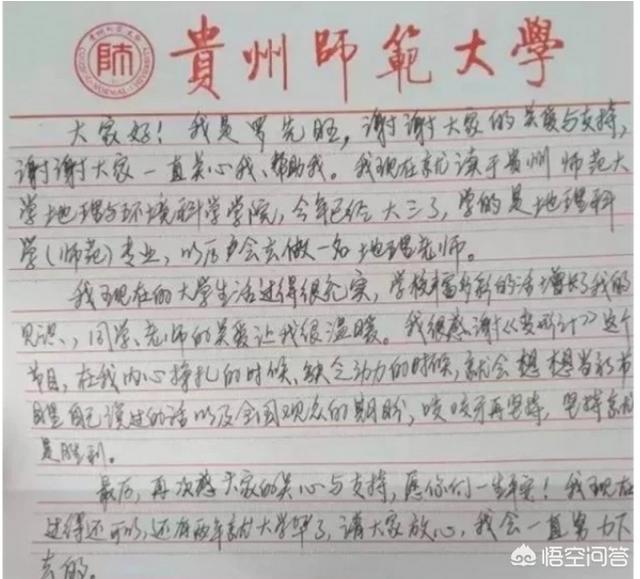 貴州師範大學
師
大家好！我是罗先旺，谢谢大家的关爱与支持，
谢谢大家一直关心我、帮助我。我现在就读于贵州师范大
学地理与环境科学学院，今年已经大三了，学的是地理科
学(师范)专业，以后也会去做一名地理老师。
我现在的大学生活过得很充实，学校丰富多彩的活增长了我的
见识，同学、老师的关爱让我很温暖。我很感谢《变形计》这个
节目，在我内心挣扎的时候、缺乏动力的时候，就会想想当初节
目里自己说过的话以及全国观众的期盼，咬咬牙再坚持，坚持就
是胜利。
最后，再次感大家的关心与支持，愿你们一生平安！我现在
过得还可以，还有两年就大学毕了，请大家放心，我会一直努力下
去的。
悟空问答